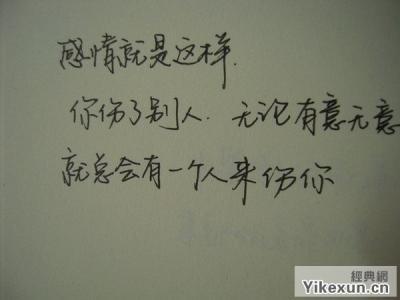 感情就是这样.
你伤了别人. 无论有意无意
就总会有一个人来伤你
經典網
Yikexun.cn